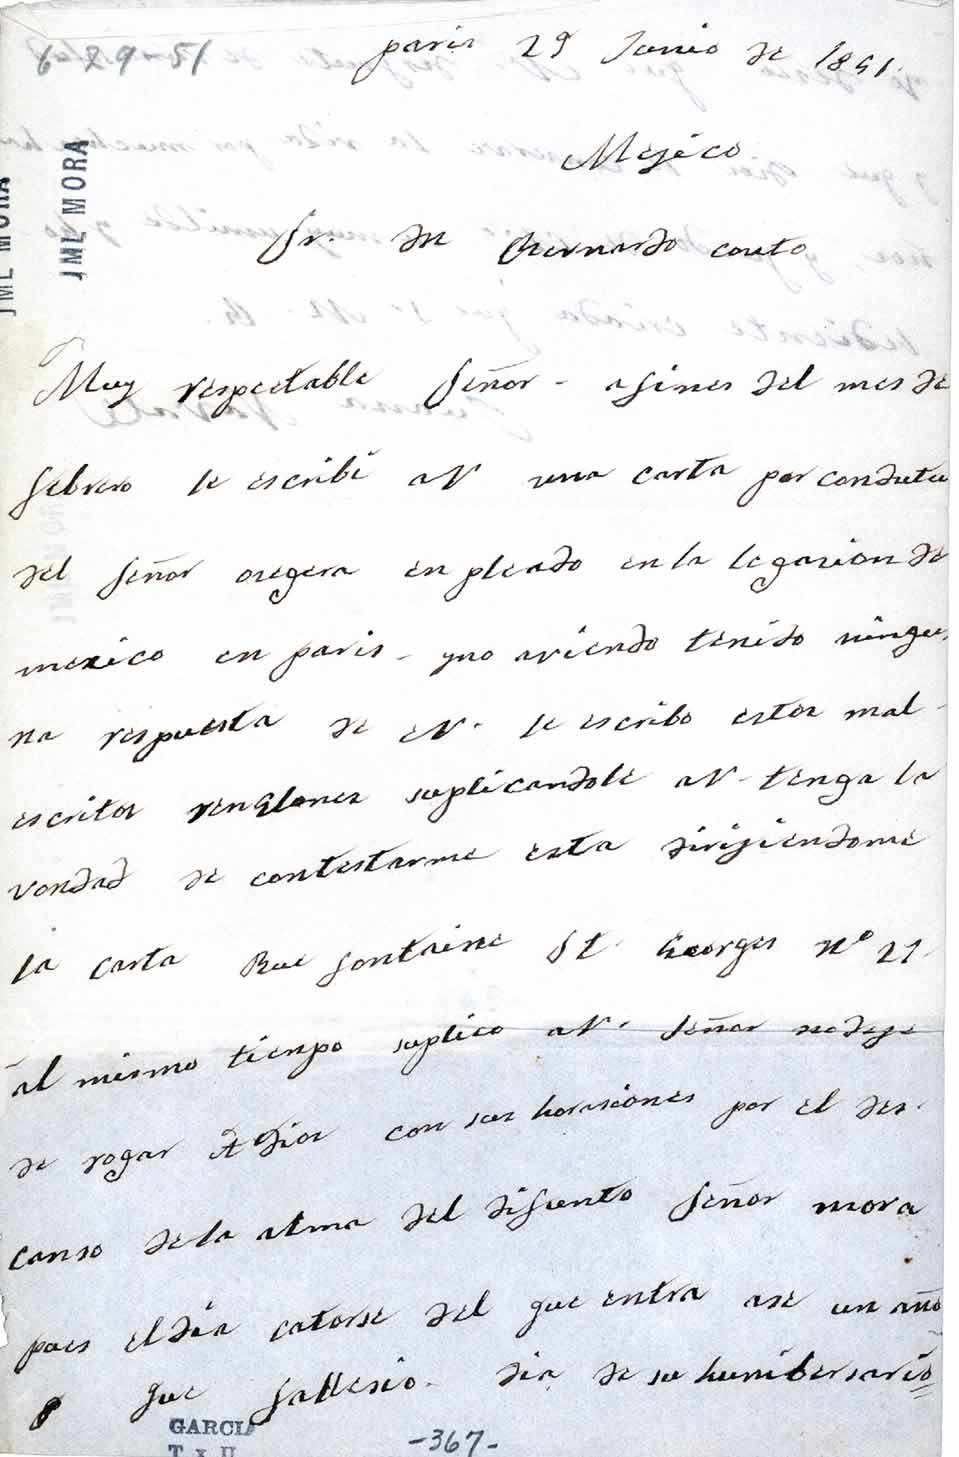 6-29-51
paris 29 Junio de 1851.
Mejico
JML MORA
JML MORA
Sr. Dn Bernardo couto
Muy respectable Señor - afines del mes de
febrero le escribi aV una carta por condutu
del Señor osegera enpleado en la legasion de
mexico en paris - yno aviendo tenido ningu
na respuesta de eV. le escribo estos mal
escritos renglones suplicandole aV. tenga la
vondad de contestarme esta dirijiendome
la carta Rue fontaine St. Georges nº 21.
al mismo tienpo suplico aV. Señor nodeje
de rogar A Dios con sus horasiones por el des.
canso dela alma del difunto Señor mora
pues eldia catorse del que entra ase un año
que fallesio - dia de su huniversario
GARCIA
-367-